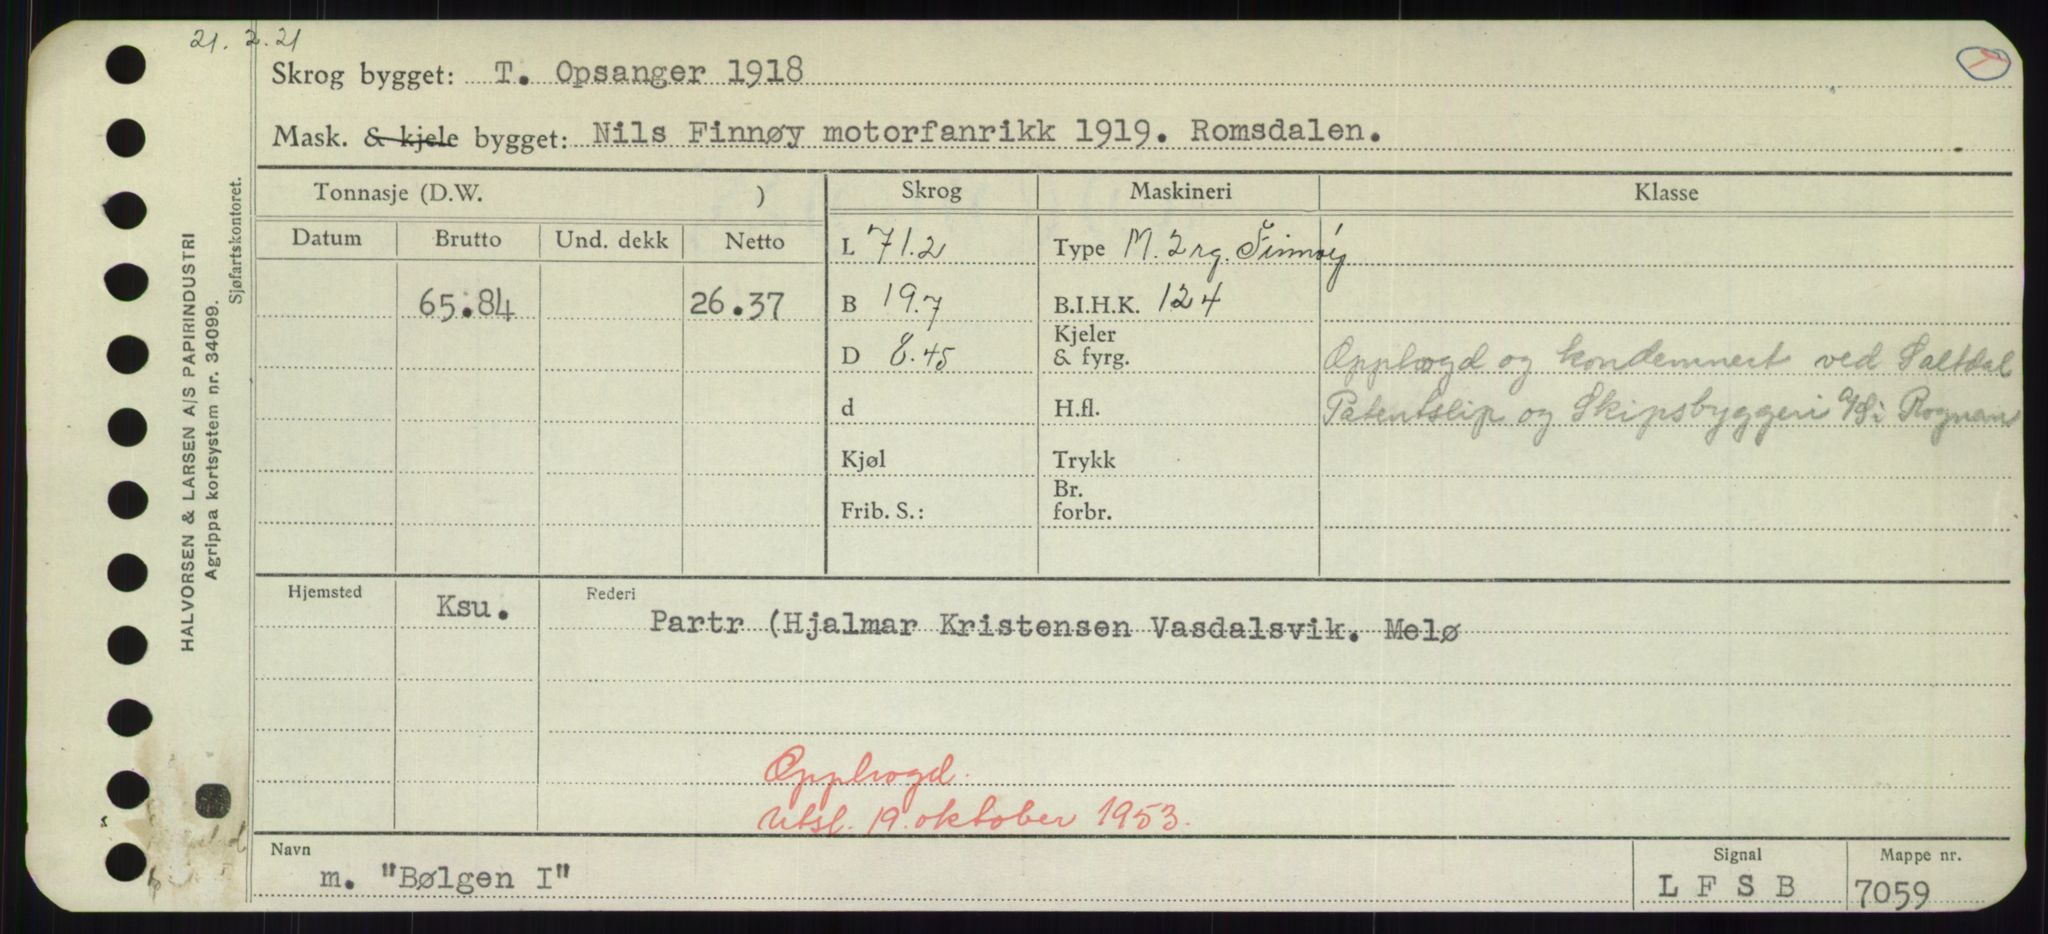 21. 2. 21
Skrog bygget: T. Opsanger 1918
Mask. & kjele bygget: Nils Finnøy motorfanrikk 1919. Romsdalen.
Tonnasje (D.W. ) Skrog Maskineri Klasse
Datum Brutto Und. dekk Netto
L 71.2 Type M. 2 rg. Finnøy
65.84 26.37 B 19.7 B.I.H.K. 124
D 8.45 Kjeler & fyrg.
Opphogd og kondemnert ved Saltdal
d H.fl. Patentslip og Skipsbyggeri A/S i Rognan
Kjøl Trykk
Frib. S.: Br. forbr.
Hjemsted Ksu. Rederi
Partr (Hjalmar Kristensen Vasdalsvik. Melø
Opphogd.
Utsl. 19. oktober 1953.
Navn Signal Mappe nr.
m. "Bølgen I" L F S B 7059
HALVORSEN & LARSEN A/S PAPIRINDUSTRI
Agrippa kortsystem nr. 34099.
Sjøfartskontoret.